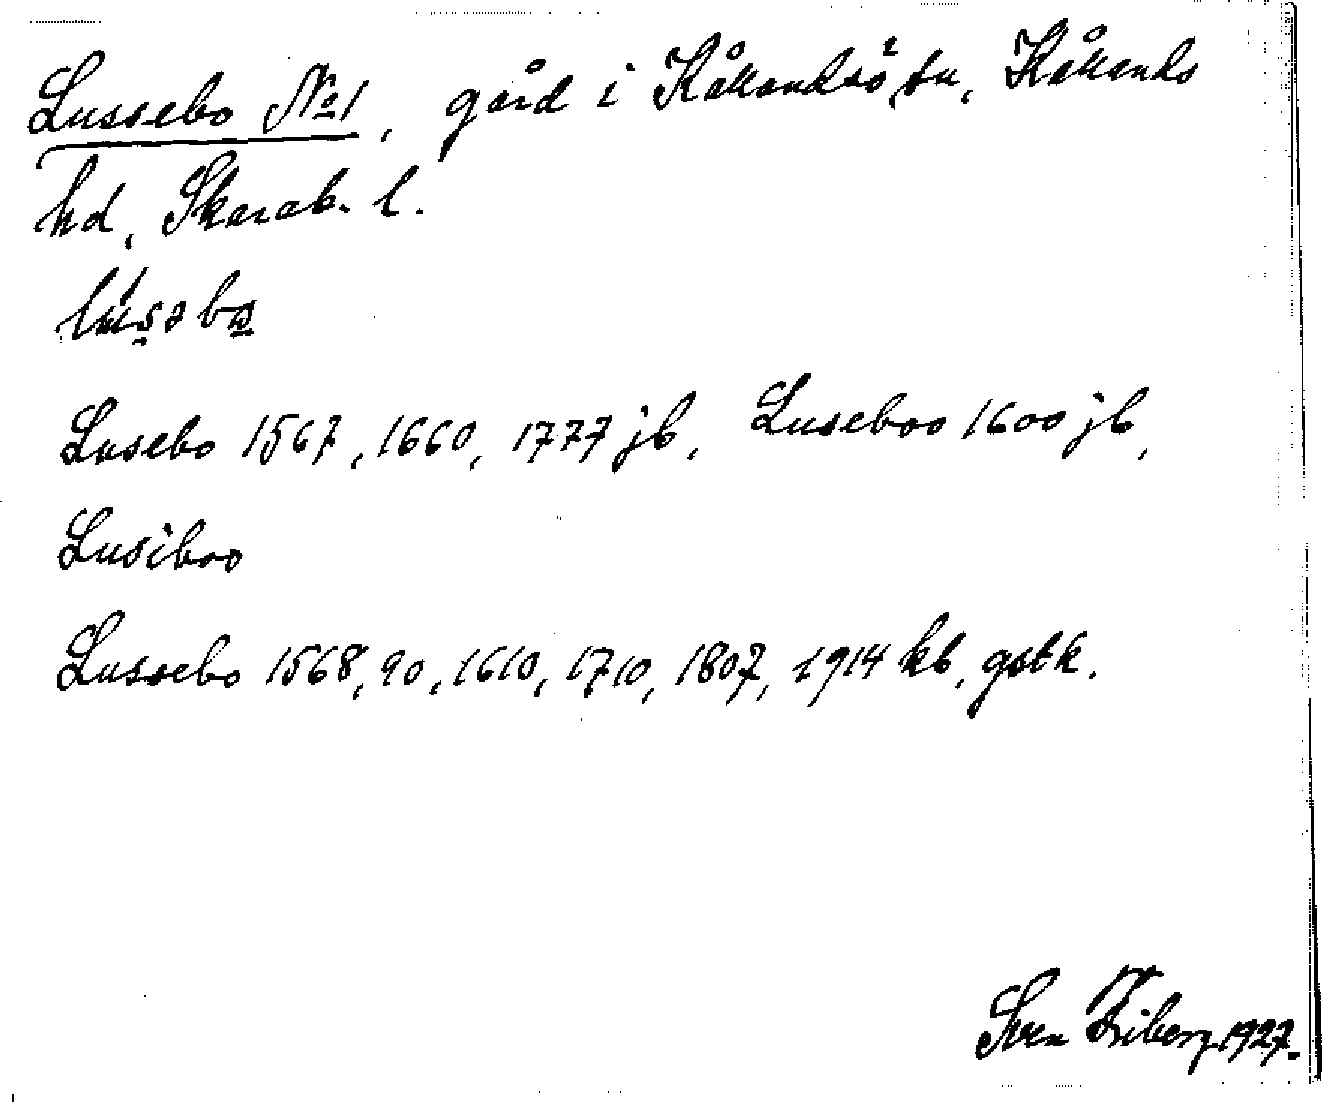 Lussebo № 1, gård i Kåkindsö sn, Kåkinds
hd, Skarab. l.
Lusebo 1567, 1660, 1777 jb, Luseboo 1600 jb,
Lusiboo
Lussebo 1568, 90, 1610, 1710, 1807, 1914 kb, gstk.
Sven Friberg 1927.